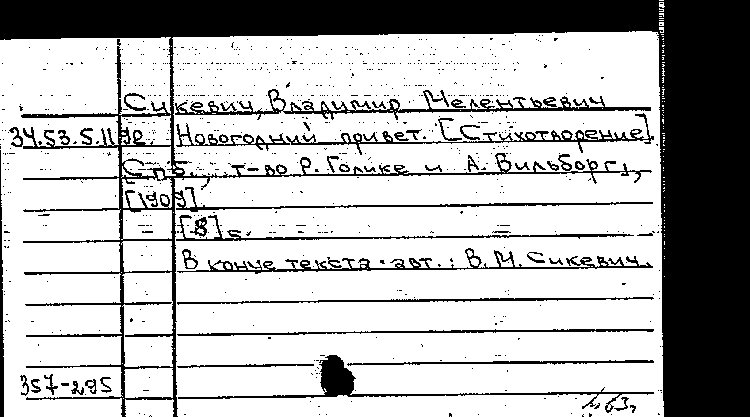 Сикевич, Владимир Мелентьевич
34.53.5.1192. Новогодний привет. [Стихотворение].
Спб., т-во Р. Голике и А. Вильборг,
[1909].
[8] с.
В конце текста авт.: В. М. Сикевич.
357-295